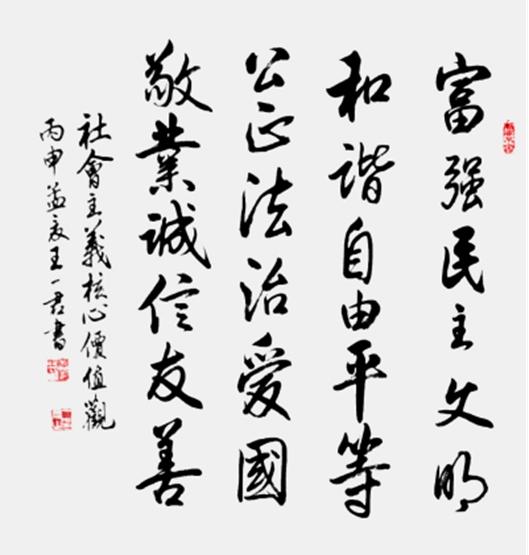 富强民主文明
和谐自由平等
公正法治爱國
敬業誠信友善
社會主義核心價值觀
丙申孟夏王一君書